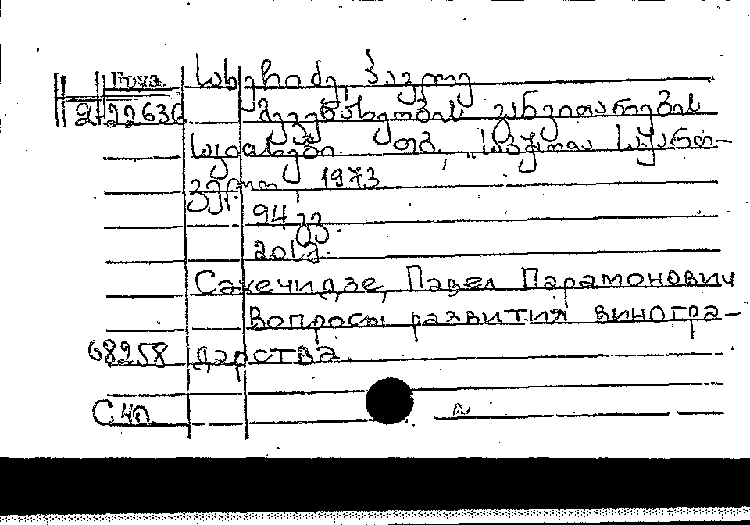 Груз.
2-22636
სახეჩიძე, პავლე
მევენახეობის განვითარების
საკითხები. თბ., "საბჭოთა საქართ-
ველო", 1973
94 გვ.
Сакечидзе, Павел Парамонович
Вопросы развития виногра-
68258 дарства.